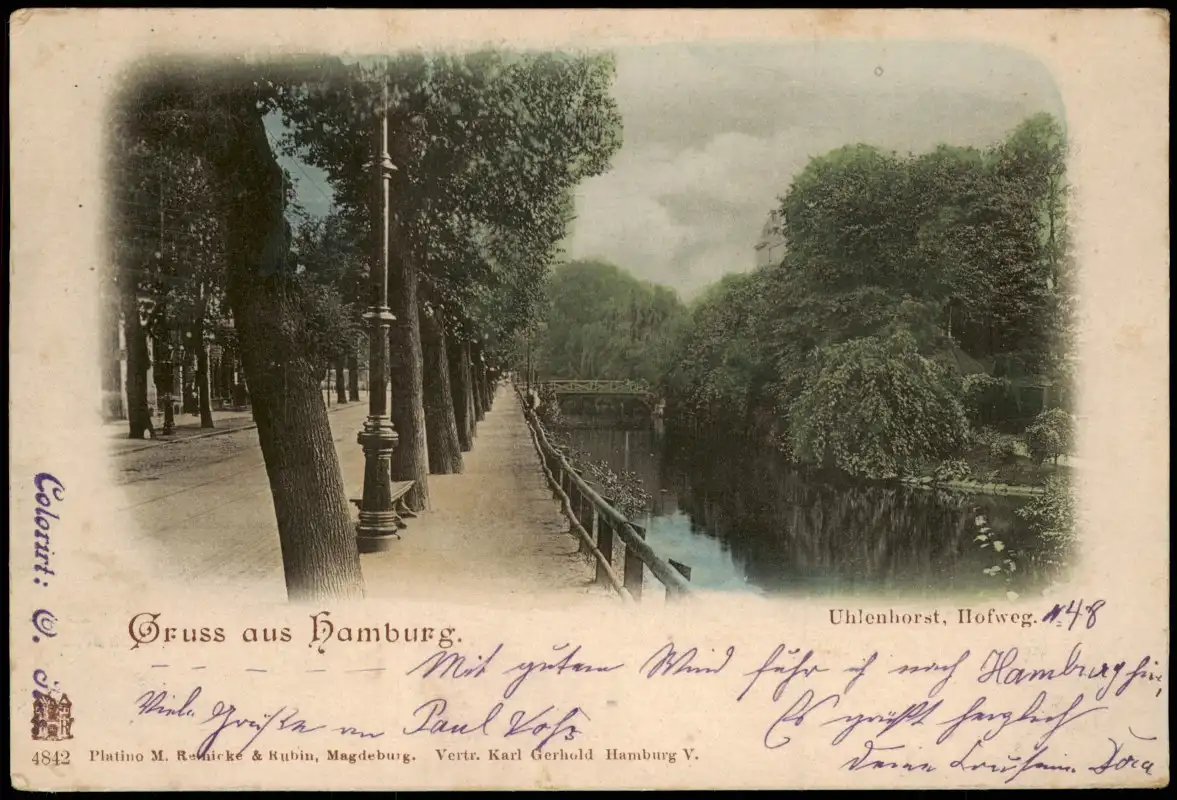 Colorirt: O.
Gruss aus Hamburg.
Uhlenhorst, Hofweg. № 48
Mit gutem Wind fuhr ich nach Hamburg hin,
Viele Grüße an Paul Voß
Es grüßt herzlich
Deine Cousine Dora
4842 Platino M. Reinicke & Rubin, Magdeburg. Vertr. Karl Gerhold Hamburg V.